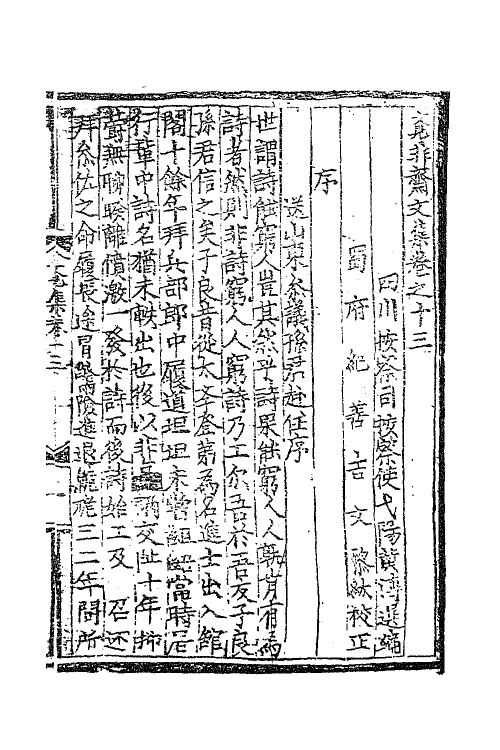 覺非齋文集卷之十三
四川按察司按察使弋陽黃溥選編
蜀府紀善吉文黎 校正
序
送山東叅議孫君赴任序
世謂詩能窮人豈其然乎詩果能窮人人孰肯有為
詩者然則非詩窮人人窮詩乃工尓吾於吾友子良
孫君信之矣子良昔從太 登第為名進士出入館
閣十餘年拜兵部郎中履道坦坦未嘗 當時居
行輩中詩名猶未軼出也後以非 謫交阯十年抑
鬱無聊暌離憤激一發於詩而後詩始工及 召还
拜叅佐之命履長途冒 險進退 三二年間所
覺集卷十三
一